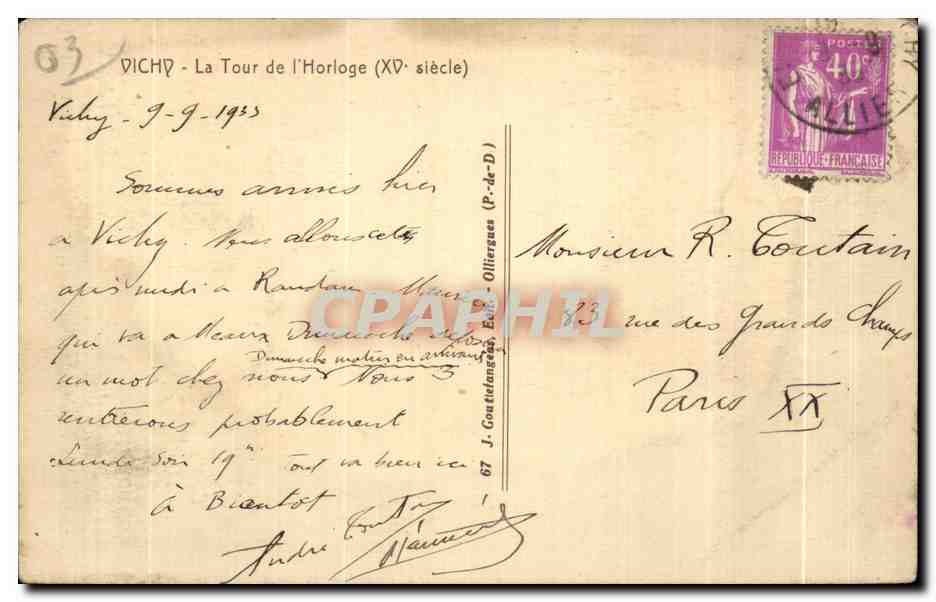 03
VICHY - La Tour de l'Horloge (XVe siècle)
POSTES
40c
ALLIER
REPUBLIQUE FRANCAISE
Vichy - 9-9-1933
Sommes arrivés hier
à Vichy. Nous allons cet
après midi à Randan
qui va à Meaux Dimanche
Dimanche matin en arrivant
un mot chez nous Nous 3
rentrerons probablement
Lundi Soir Tout va bien ici
à Bientôt
André
67 J. Goutlefangeas, Edit. - Olliergues (P.-de-D)
Monsieur R. Toutain
83 rue des Grands Champs
Paris XX
CPAPHIL